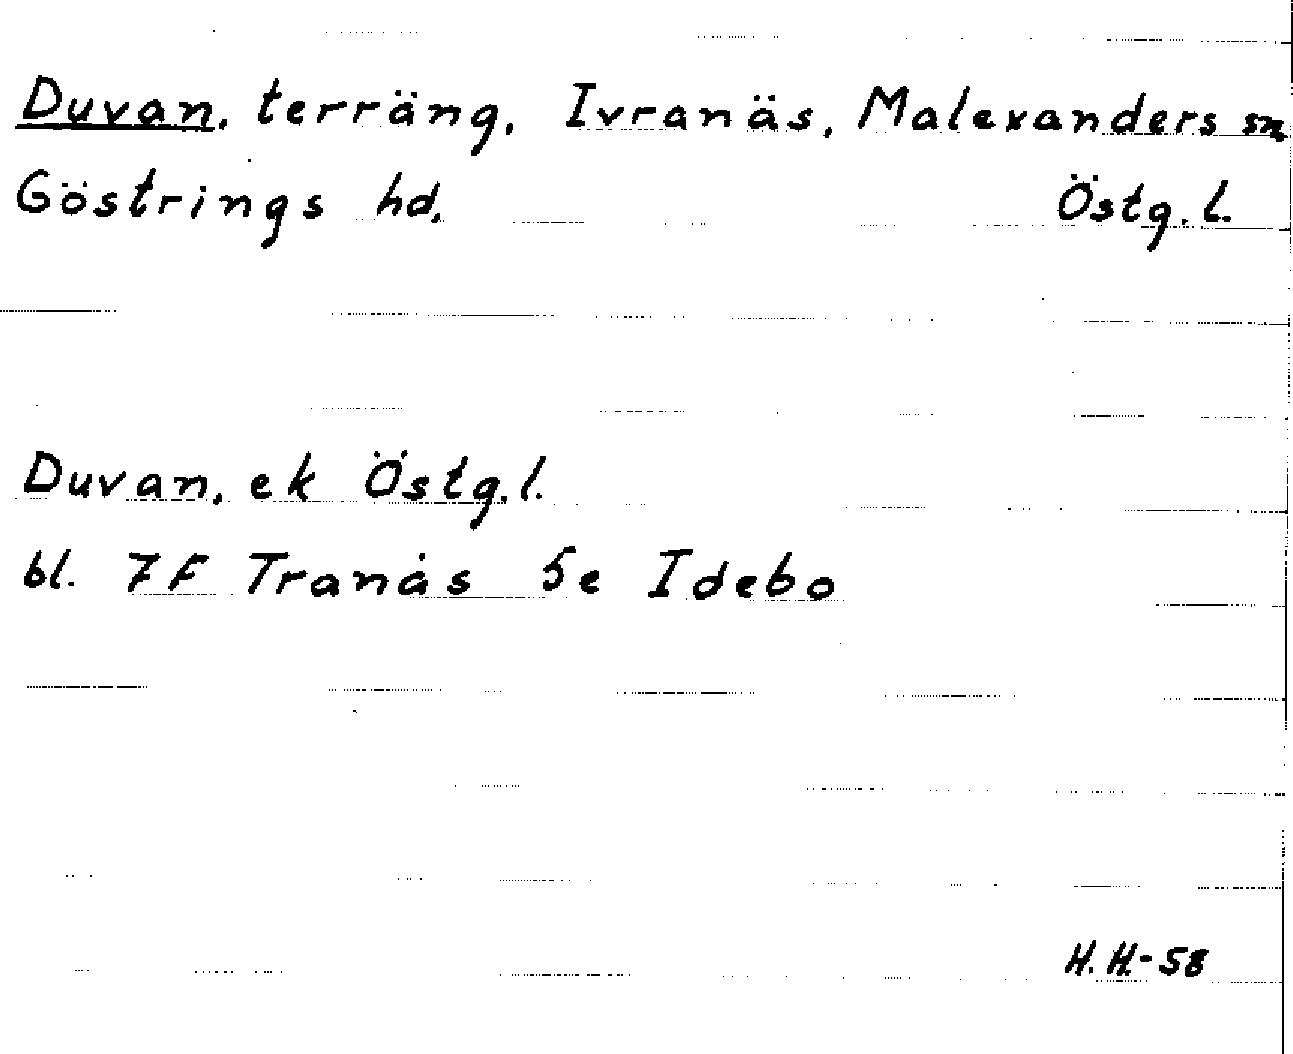 Duvan, terräng, Ivranäs, Malexanders sn
Göstrings hd. Östg. l.
Duvan, ek Östg. l.
bl. 7F Tranås 5e Idebo
H. H.-58